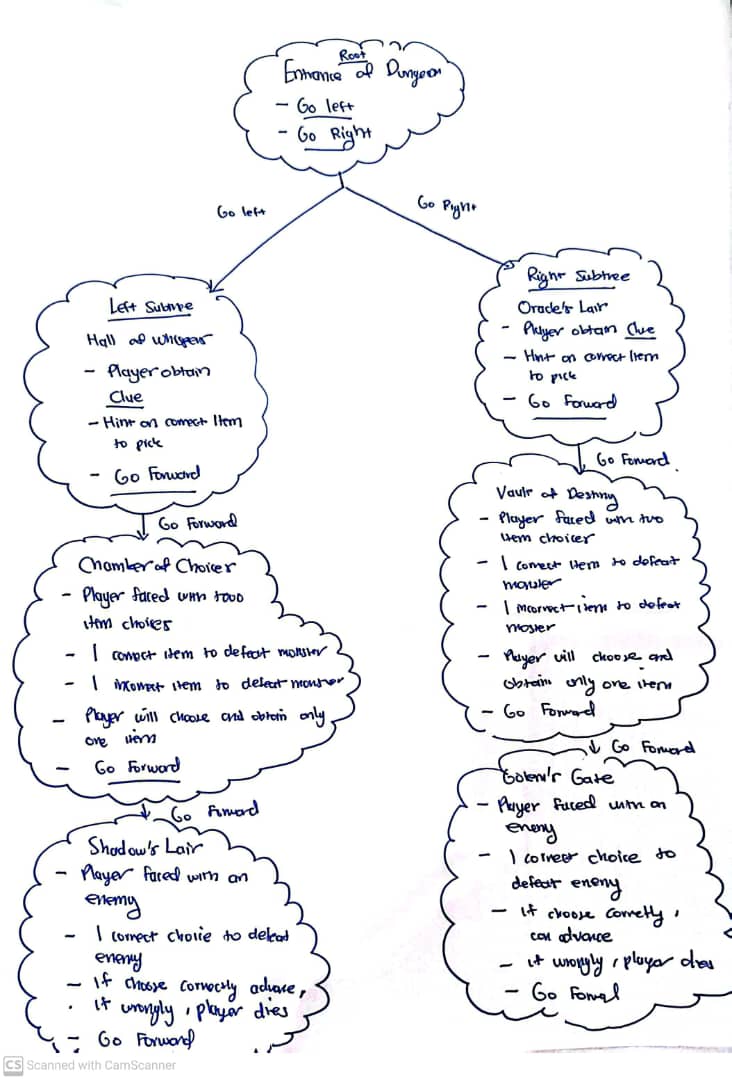 Root
Entrance of Dungeon
- Go left
- Go Right
Go left
Go Right
Left Subtree
Hall of Whispers
- Player obtain
Clue
- Hint on correct Item
to pick
- Go Forward
Go Forward
Chamber of Choices
- Player faced with two
item choices
- 1 correct item to defeat monster
- 1 incorrect item to defeat monster
- Player will choose and obtain only
one item
- Go Forward
Go Forward
Shadow's Lair
- Player faced with an
enemy
- 1 correct choice to defeat
enemy
- If choose correctly advance,
. if wrongly, player dies
- Go Forward
Right Subtree
Oracle's Lair
- Player obtain Clue
- Hint on correct Item
to pick
- Go Forward
Go Forward.
Vault of Destiny
- Player faced with two
item choices
- 1 correct item to defeat
monster
- 1 incorrect item to defeat
monster
- Player will choose and
obtain only one item
- Go Forward
Go Forward
Golem's Gate
- Player faced with an
enemy
- 1 correct choice to
defeat enemy
- if choose correctly,
can advance
- if wrongly, player dies
- Go Forward
CS Scanned with CamScanner